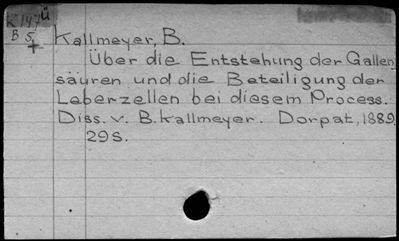 K 147 ü
B 5
Kallmeyer, B.
Über die Entstehung der Gallen
säuren und die Beteiligung der
Leberzellen bei diesem Process.
Diss. v. B. Kallmeyer. Dorpat, 1889.
29 S.